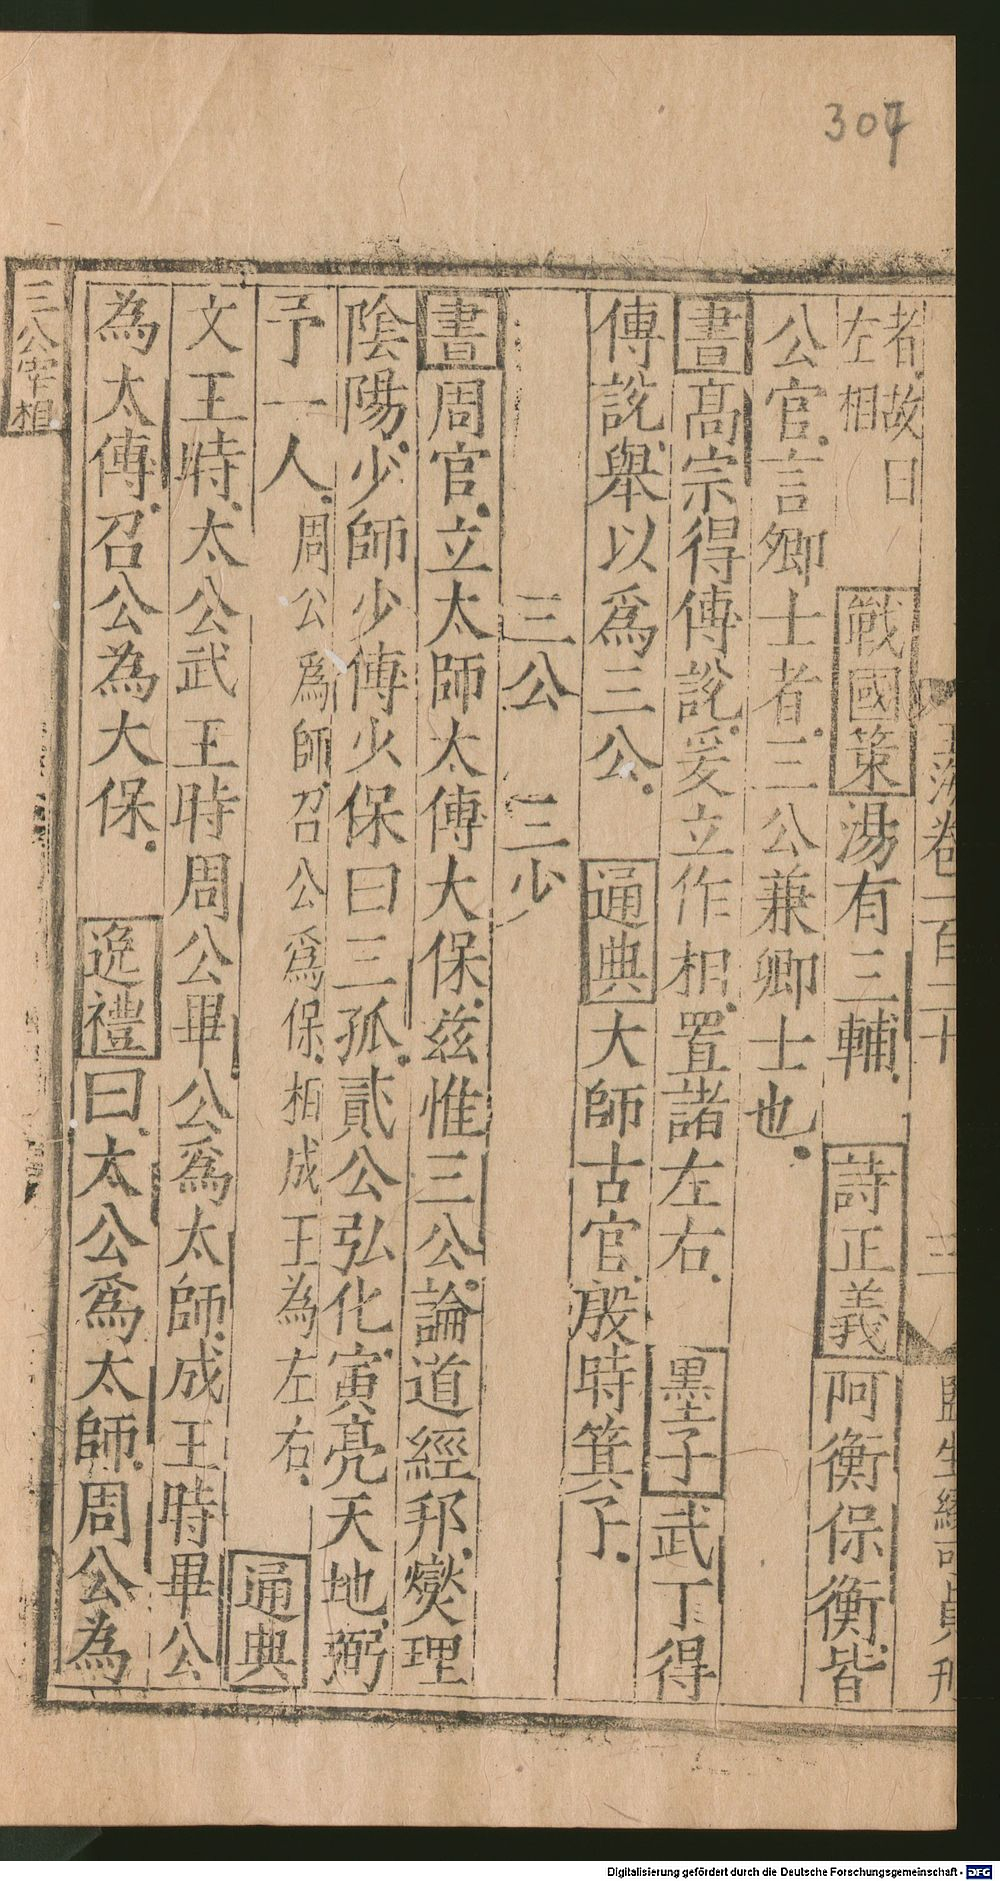 304
玉海卷一百二十
三
監生繆可貞刊
者故曰
左相
戰國策湯有三輔詩正義阿衡保衡皆
公官言卿士者三公兼卿士也
書高宗得傅說爰立作相置諸左右墨子武丁得
傅說舉以為三公通典大師古官殷時箕子
三公三少
書周官立太師太傅大保茲惟三公論道經邦燮理
陰陽少師少傅少保曰三孤貳公弘化寅亮天地弼
予一人周公為師召公為保相成王為左右通典
文王時太公武王時周公畢公為太師成王時畢公
為太傅召公為大保逸禮曰太公為太師周公為
三公宰相
Digitalisierung gefördert durch die Deutsche Forschungsgemeinschaft - DFG